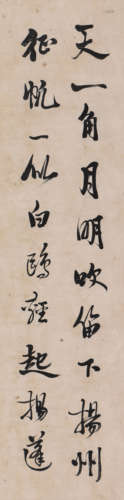 天一角月明吹笛下揚州
征帆一似白鷗輕起揚蓬